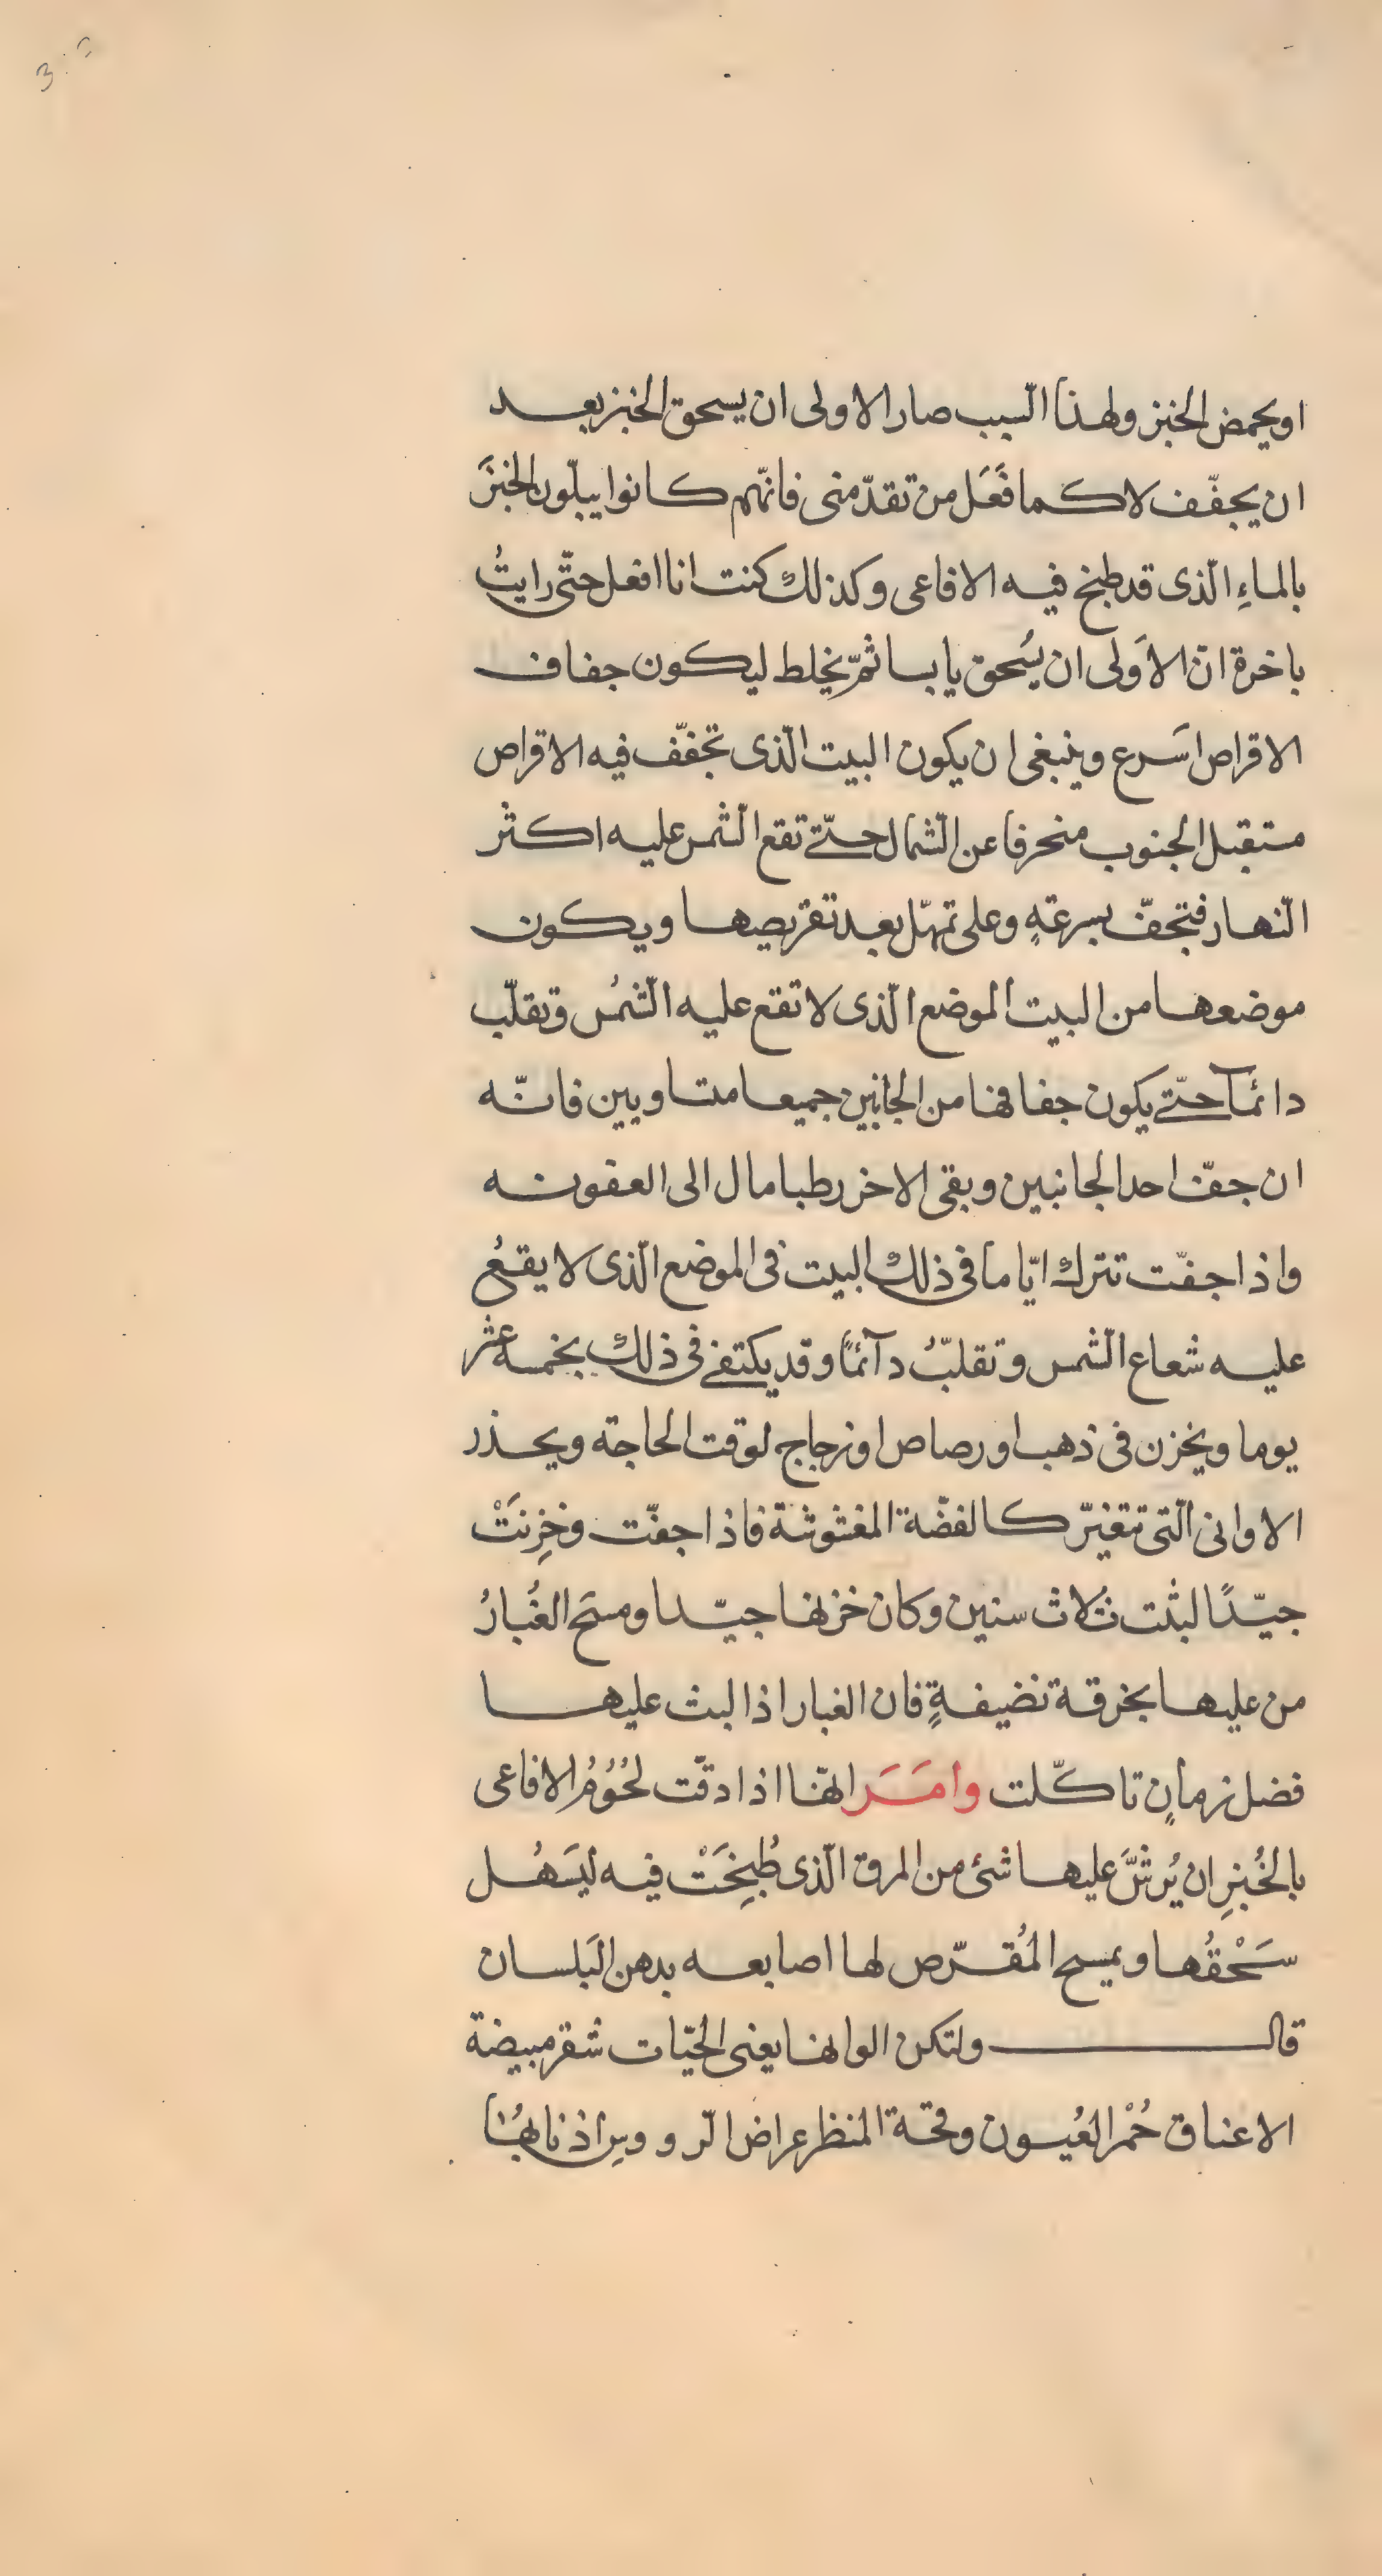 او يحمض الخبز ولهذا السّبب صار الاولى ان يسحق الخبز بعد
ان يجفّف لا كما فَعَل من تقدّمنى فانّهم كانوا يبلّون الخبزَ
بالماءِ الّذى قد طبخ فيه الافاعى وكذلك كنت انا افعل حتّى رايتُ
باخرة انّ الاَولى ان يُسحق يابسا ثمّ يخلط ليكون جفاف
الاقراص اسَرع وينبغى ان يكون البيت الّذى تجفّف فيه الاقراص
مستقبل الجنوب منحرفا عن الشّمال حتّى تقع الشّمس عليه اكثر
النّهار فتجفّ بسرعةٍ وعلى تمهّل بعد تقريصها ويكون
موضعها من البيت الموضع الّذى لا تقع عليه الشّمسُ وتقلّب
دائماً حتّى يكون جفافها من الجانبين جميعا متساويين فانّه
ان جفّ احد الجانبين وبقى الاخر رطبا مال الى العفونه
واذا جفّت تترك ايّاما فى ذلك البيت فى الموضع الّذى لا يقعُ
عليه شعاع الشّمس وتقلبّ دآئماً وقد يكتفى فى ذلك بخمسة عشر
يوما ويخزن فى ذهب او رصاص او زجاج لوقت الحاجة ويحذر
الاوانى الّتى تتغيّر كالفضّة المغشوشة فاذا جفّت وخِزنَتْ
جيّدًا لبثت ثلاث سنين وكان خزنها جيّدا ومسَح الغُبارُ
من عليها بخرقة نضيفةٍ فان الغبار اذا لبث عليها
فضل زمانٍ تاكّلت وامَرَ انّها اذا دقّت لحُوُمُ الافاعى
بالخُبزِ ان يُرشَّ عليها شئ من المرق الّذى طُبِخَتْ فيه ليَسَهُل
سَحْقُها ويمسح المُقرّص لها اصابعه بدهن البَلسان
قال ولتكن الوانها يعنى الحيّات شقر مبيضة
الاعناق حُمْر العُيون وقحة المنظر عراض الرّووسِ اذنابُها